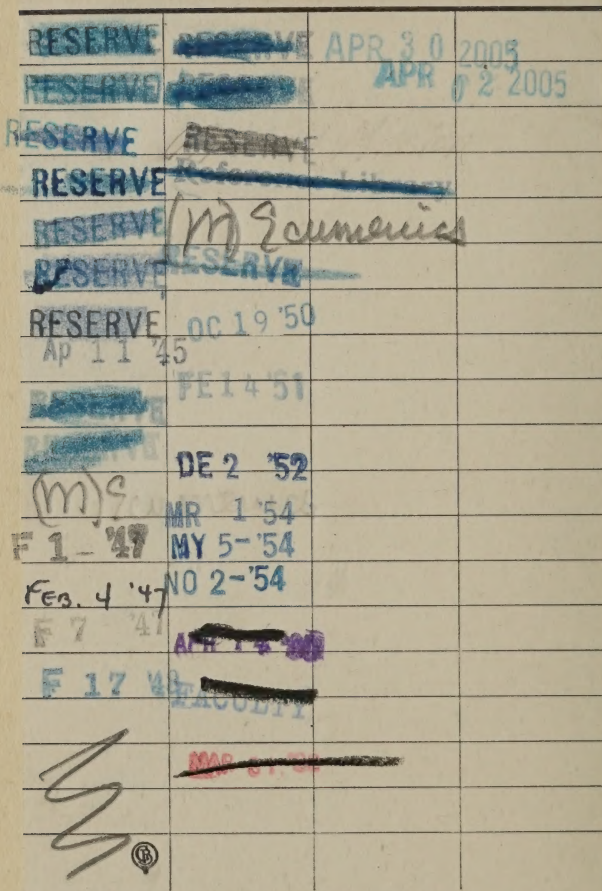 RESERVE
RESERVE
RESERVE
RESERVE
RESERVE
RESERVE
RESERVE
Ap 11 '45
RESERVE
RESERVE
(M)
F 1 - '47
FEB. 4 '47
F 7 '47
F 17 '48
RESERVE
RESERVE
RESERVE
Reference Library
(M) Ecumenics
RESERVE
OC 19 '50
FE 14 '51
DE 2 '52
MR 1 '54
MY 5 - '54
NO 2 - '54
APR 14
FACULTY
MAR
APR 30 2005
APR 02 2005